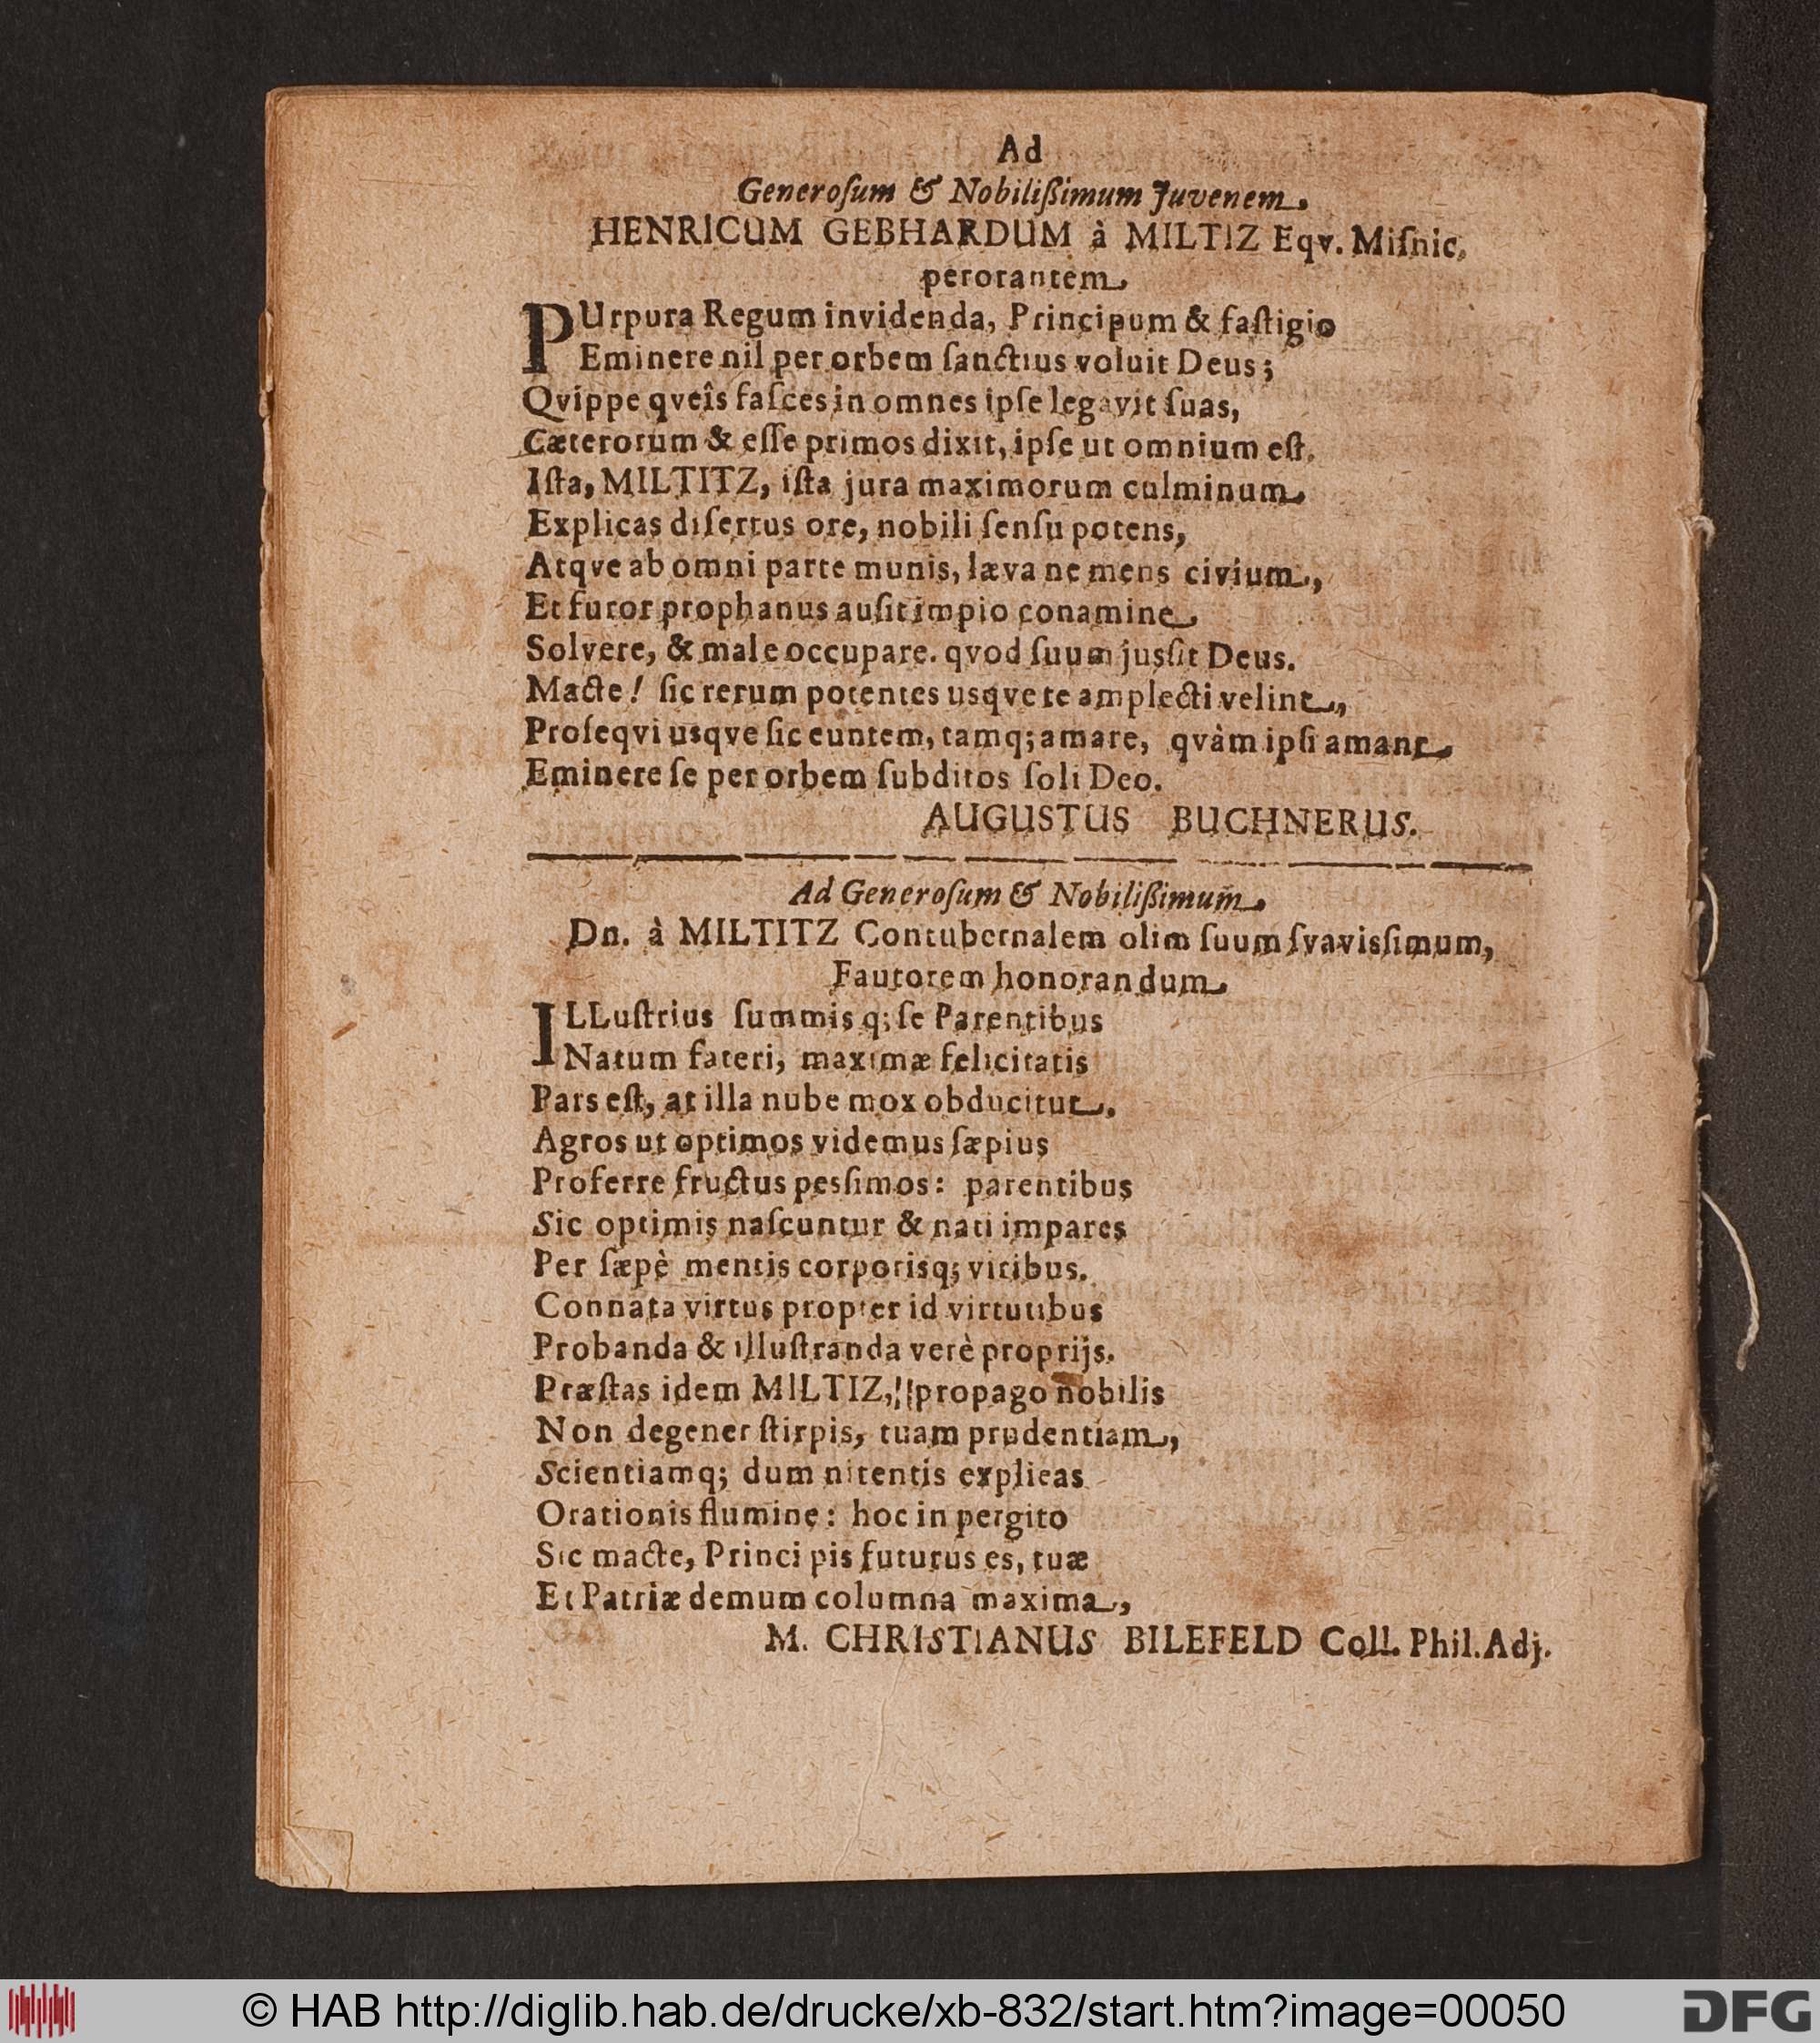 Ad
Generoſum & Nobilißimum Juvenem.
HENRICUM GEBHARDUM à MILTIZ Eqv. Miſnic.
perorantem
PUrpura Regum invidenda, Principum & faſtigio
Eminere nil per orbem ſanctius voluit Deus;
Qvippe qveîs faſces in omnes ipſe legavit ſuas,
Cæterorum & eſſe primos dixit, ipſe ut omnium eſt.
Iſta, MILTITZ, iſta jura maximorum culminum
Explicas diſertus ore, nobili ſenſu potens,
Atqve ab omni parte munis, læva ne mens civium,
Et furor prophanus auſit impio conamine
Solvere, & male occupare. qvod ſuum jusſit Deus.
Macte! ſic rerum potentes usqve te amplecti velint,
Proſeqvi usqve ſic euntem, tamq; amare, qvàm ipſi amant
Eminere ſe per orbem ſubditos ſoli Deo.
AUGUSTUS BUCHNERUS.
Ad Generoſum & Nobilißimum̃.
Dn. à MILTITZ Contubernalem olim ſuum ſvavisſimum,
Fautorem honorandum
ILLuſtrius ſummis q; ſe Parentibus
Natum fateri, maximæ felicitatis
Pars eſt, at illa nube mox obducitur.
Agros ut optimos videmus ſæpius
Proferre fructus pesſimos: parentibus
Sic optimis naſcuntur & nati impares
Per ſæpè mentis corporisq; viribus.
Connata virtus propter id virtutibus
Probanda & illuſtranda verè proprijs.
Præſtas idem MILTIZ, propago nobilis
Non degener ſtirpis, tuam prudentiam,
Scientiamq; dum nitentis explicas
Orationis flumine: hoc in pergito
Sic macte, Principis futurus es, tuæ
Et Patriæ demum columna maxima,
M. CHRISTIANUS BILEFELD Coll. Phil. Adj.
© HAB http://diglib.hab.de/drucke/xb-832/start.htm?image=00050
DFG